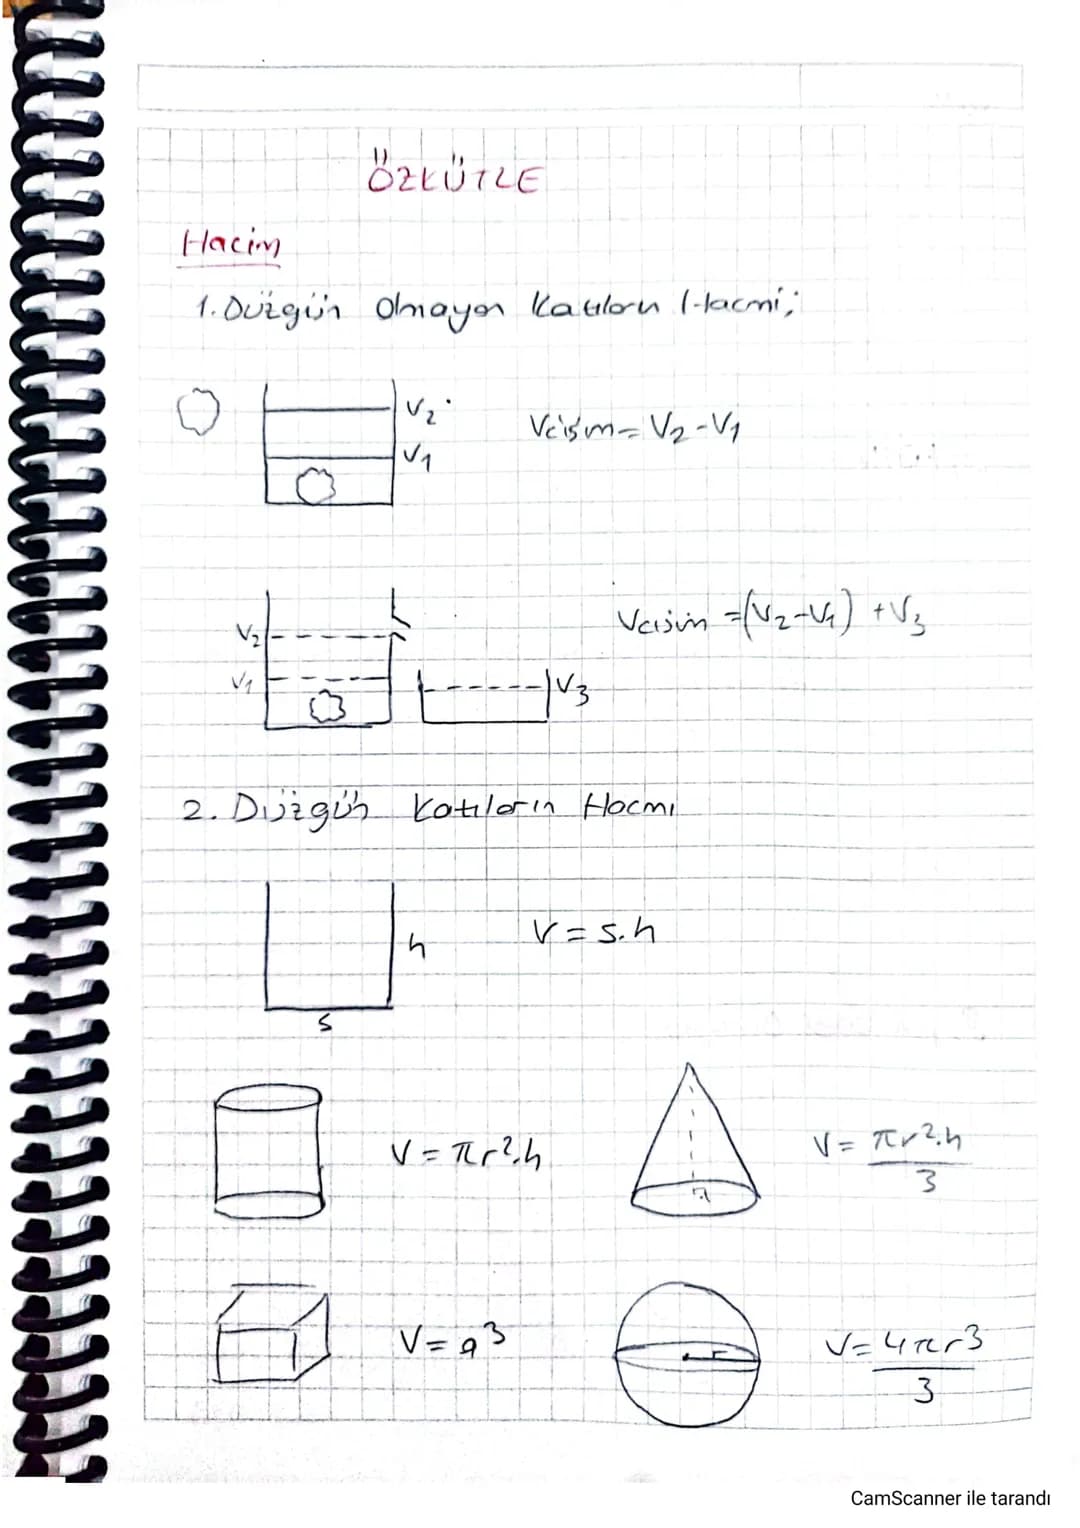 ÖZKÜTLE
Hacim
1. Düzgün Olmayan Katıların Hacmi;
V2
V1
Vcisim = V2 - V1
V2
V1
V3
Vcisim = (V2 - V1) + V3
2. Düzgün Katıların Hacmi
h
s
V = s.h
V = πr².h
V = πr².h
3
V = a³
r
V = 4πr³
3
CamScanner ile tarandı